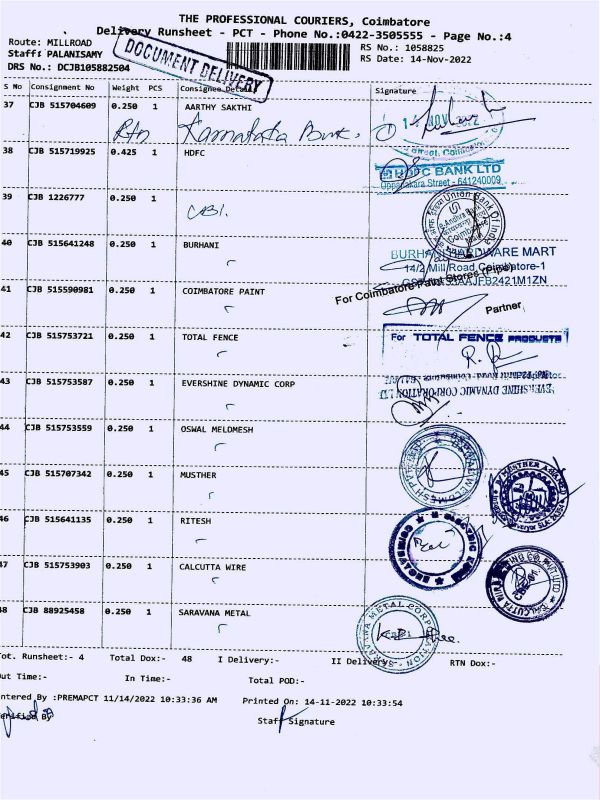 THE PROFESSIONAL COURIERS, Coimbatore
Delivery Runsheet - PCT - Phone No.:0422-3505555 - Page No.:4
Route: MILLROAD
RS No.: 1058825
Staff: PALANISAMY
RS Date: 14-Nov-2022
DRS No.: DCJB105882504
DOCUMENT DELIVERY
S No Consignment No Weight PCS Consignee Details Signature
37 CJB 515704609 0.250 1 AARTHY SAKTHI
Rtn Karnataka Bank.
38 CJB 515719925 0.425 1 HDFC
HDFC BANK LTD
Oppanakara Street - 641240009
39 CJB 1226777 0.250 1
CBI.
Union Bank Of India
40 CJB 515641248 0.250 1 BURHANI
BURHANI HARDWARE MART
14/2 Mill Road Coimbatore-1
41 CJB 515590981 0.250 1 COIMBATORE PAINT
For Coimbatore Paint Stores (Pipe)
Partner
42 CJB 515753721 0.250 1 TOTAL FENCE
For TOTAL FENCE PRODUCTS
43 CJB 515753587 0.250 1 EVERSHINE DYNAMIC CORP
EVERSHINE DYNAMIC CORPORATION LTD
44 CJB 515753559 0.250 1 OSWAL MELDMESH
45 CJB 515707342 0.250 1 MUSTHER
46 CJB 515641135 0.250 1 RITESH
47 CJB 515753903 0.250 1 CALCUTTA WIRE
48 CJB 88925458 0.250 1 SARAVANA METAL
SARAVANA METAL CORPORATION
Tot. Runsheet:- 4 Total Dox:- 48 I Delivery:- II Delivery:- RTN Dox:-
Out Time:- In Time:- Total POD:-
Entered By :PREMAPCT 11/14/2022 10:33:36 AM Printed On: 14-11-2022 10:33:54
Verified By
Staff Signature